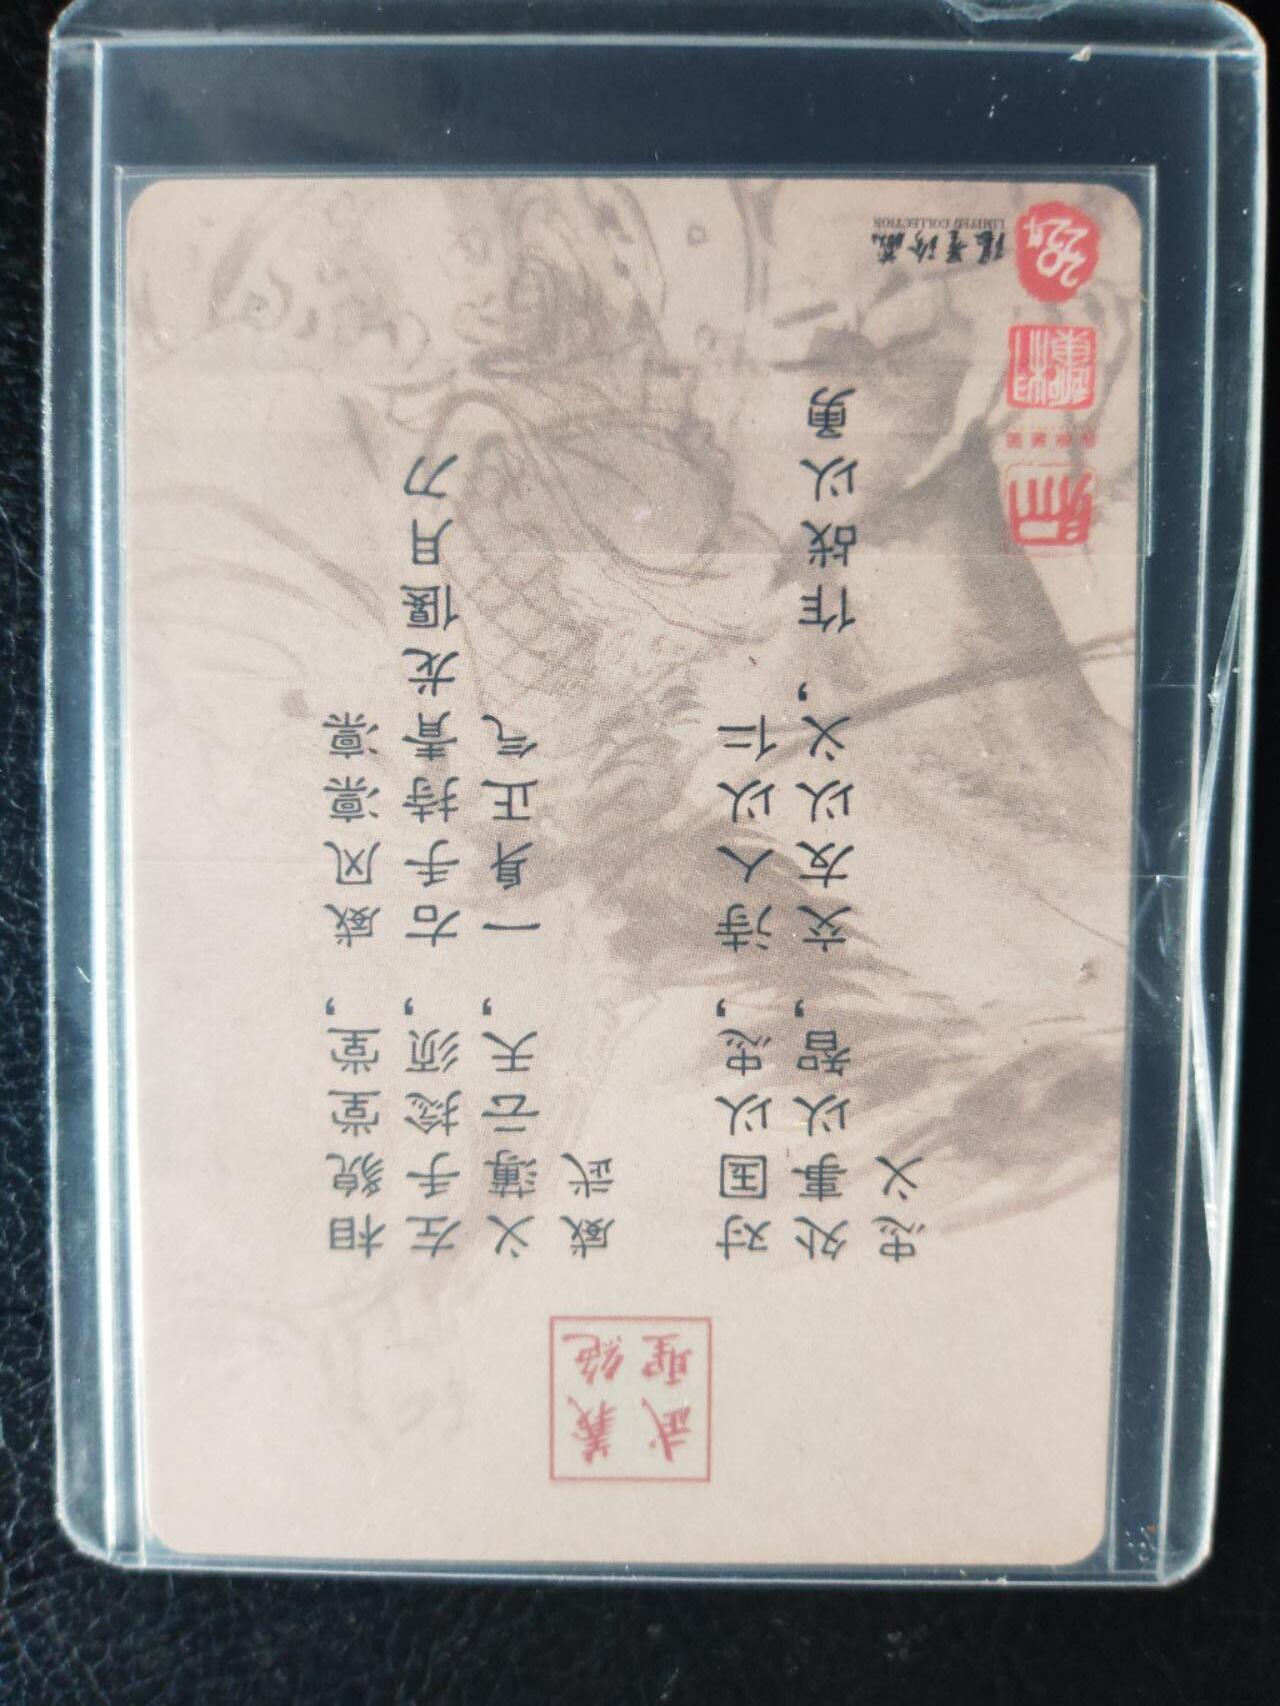 義絕
武聖
相貌堂堂，威风凛凛
左手捻须，右手持青龙偃月刀
义薄云天，一身正气
威武
对国以忠，待人以仁
处事以智，交友以义，作战以勇
忠义
限量珍藏
LIMITED COLLECTION